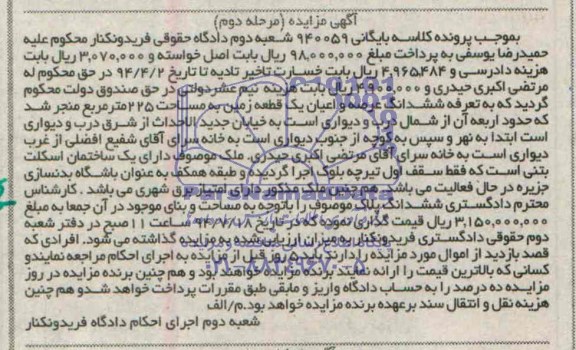 آگهی مزایده (مرحله دوم)
بموجب پرونده کلاسه بایگانی ۹۴۰۰۵۹ شعبه دوم دادگاه حقوقی فریدونکنار محکوم علیه
حمیدرضا یوسفی به پرداخت مبلغ ۹۸,۰۰۰,۰۰۰ ریال بابت اصل خواسته و ۳,۰۷۰,۰۰۰ ریال بابت
هزینه دادرسی و ۴,۹۶۵,۴۸۴ ریال بابت خسارت تاخیر تادیه تا تاریخ ۹۴/۴/۲ در حق محکوم له
مرتضی اکبری حیدری و ریال بابت هزینه نیم عشر دولت در حق صندوق دولت محکوم
گردید که به تعرفه ششدانگ عرصه و اعیان یک قطعه زمین به مساحت ۲۲۵ مترمربع منجر شد
که حدود اربعه آن از شمال درب و دیواری است به خیابان جدید الاحداث از شرق درب و دیواری
است ابتدا به نهر و سپس به کوچه از جنوب دیواری است به خانه سرای آقای شفیع افضلی از غرب
دیواری است به خانه سرای آقای مرتضی اکبری حیدری. ملک موصوف دارای یک ساختمان اسکلت
بتنی است که فقط سقف اول تیرچه بلوک اجرا گردیده و طبقه همکف به عنوان باشگاه بدنسازی
جزیره در حال فعالیت می باشد. هم چنین ملک مذکور دارای امتیاز برق شهری می باشد. کارشناس
محترم دادگستری ششدانگ پلاک موصوف را باتوجه به مساحت و بنای موجود در آن جمعا به مبلغ
۳,۱۵۰,۰۰۰,۰۰۰ ریال قیمت گذاری نموده که در تاریخ ساعت ۱۱ صبح در دفتر شعبه
دوم حقوقی دادگستری فریدونکنار به میزان ارزیابی شده به مزایده گذاشته می شود. افرادی که
قصد بازدید از اموال مورد مزایده را دارند ۵ روز قبل از مزایده به اجرای احکام مراجعه نمایند و
کسانی که بالاترین قیمت را ارائه نمایند برنده مزایده خواهند بود و هم چنین برنده مزایده در روز
مزایده ده درصد را به حساب دادگاه واریز و مابقی طبق مقررات پرداخت خواهد شد و هم چنین
هزینه نقل و انتقال سند بر عهده برنده مزایده خواهد بود. م/الف
شعبه دوم اجرای احکام دادگاه فریدونکنار
ParsNamadData